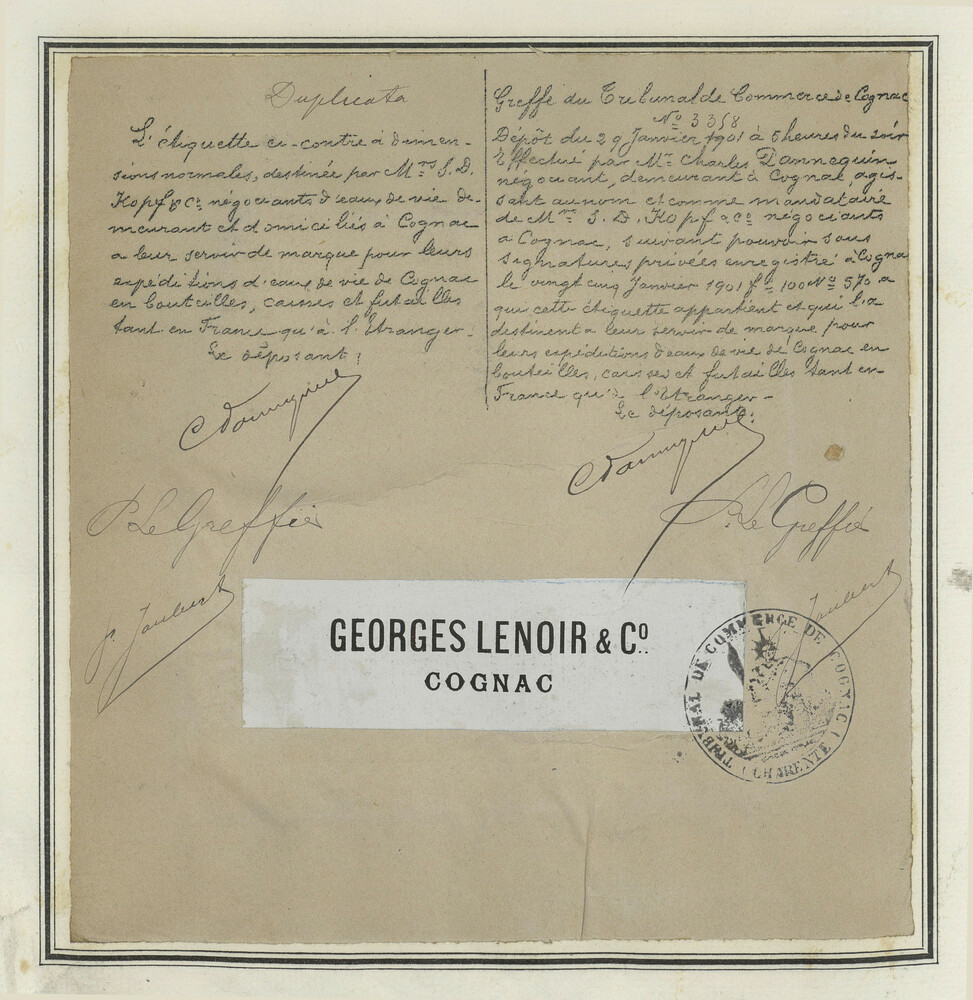 Duplicata
L'étiquette ci-contre à dimen-
sions normales, destinée par Mrs S. D.
Kopf & Co négociants d'eaux de vie de-
meurant et domiciliés à Cognac
a leur servir de marque pour leurs
expéditions d'eaux de vie de Cognac
en bouteilles, caisses et futailles
tant en France qu'à l'Etranger.
Le déposant,
P. Le Greffier
P. Joubert
Greffe du Tribunal de Commerce de Cognac
No 3358
Dépôt du 29 Janvier 1901 à 5 heures du soir
Effectué par Mr Charles Dannequin
négociant, demeurant à Cognac, agis-
sant au nom et comme mandataire
de Mrs S. D. Kopf & Co négociants
a Cognac, suivant pouvoir sous
signatures privées enregistré à Cognac
le vingt cinq Janvier 1901 fo 100 No 570 a
qui cette étiquette appartient et qui la
destinent a leur servir de marque pour
leurs expéditions d'eaux de vie de Cognac en
bouteilles, caisses et futailles tant en
France qu'à l'Etranger -
Le déposant,
P. Le Greffier
Joubert
GEORGES LENOIR & Co.
COGNAC
TRIBUNAL DE COMMERCE DE COGNAC
(CHARENTE)